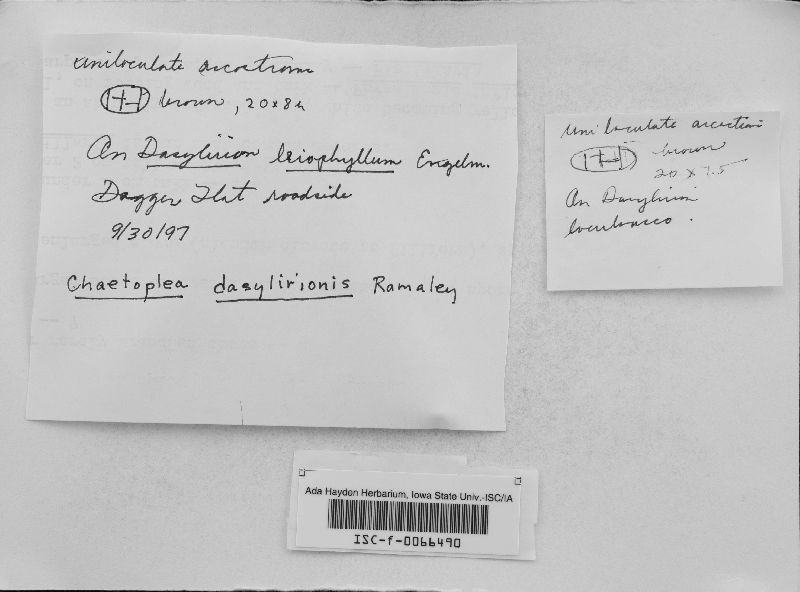 uniloculate ascostroma
brown, 20 x 8 u
On Dasylirion leiophyllum Engelm.
Dagger Flat roadside
9/30/97
Chaetoplea dasylirionis Ramaley
uniloculate
brown
20 x 7.5
On Dasylirion
Ada Hayden Herbarium, Iowa State Univ.-ISC/IA
ISC-f-0066490